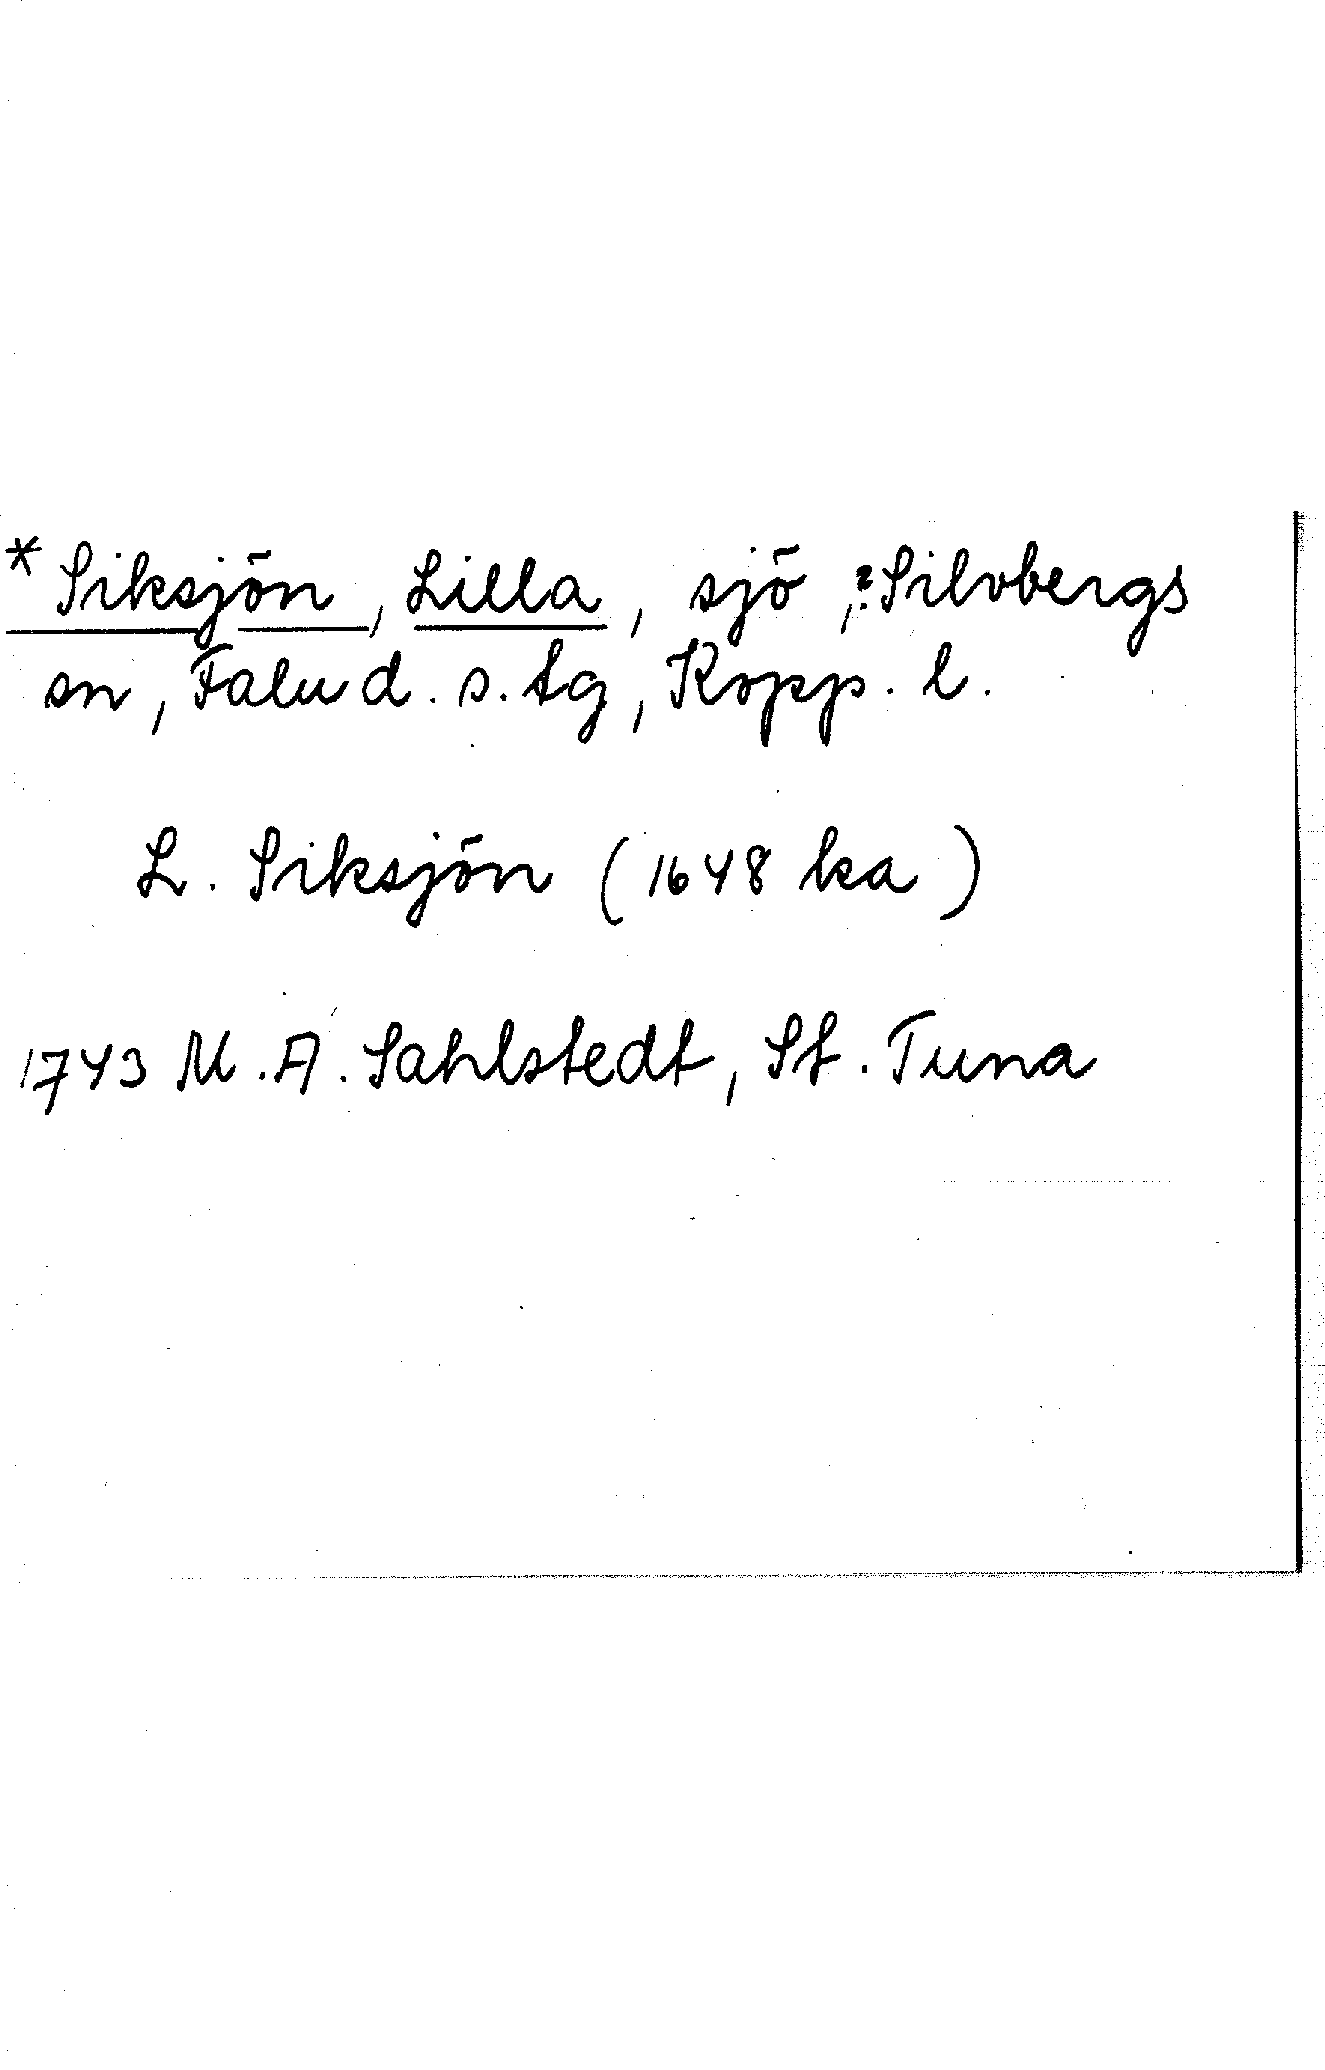 * Siksjön, Lilla, sjö, ?Silvbergs
sn, Falu d. s. tg, Kopp. l.
L. Siksjön (1648 ka)
1743 M. A. Sahlstedt, St. Tuna